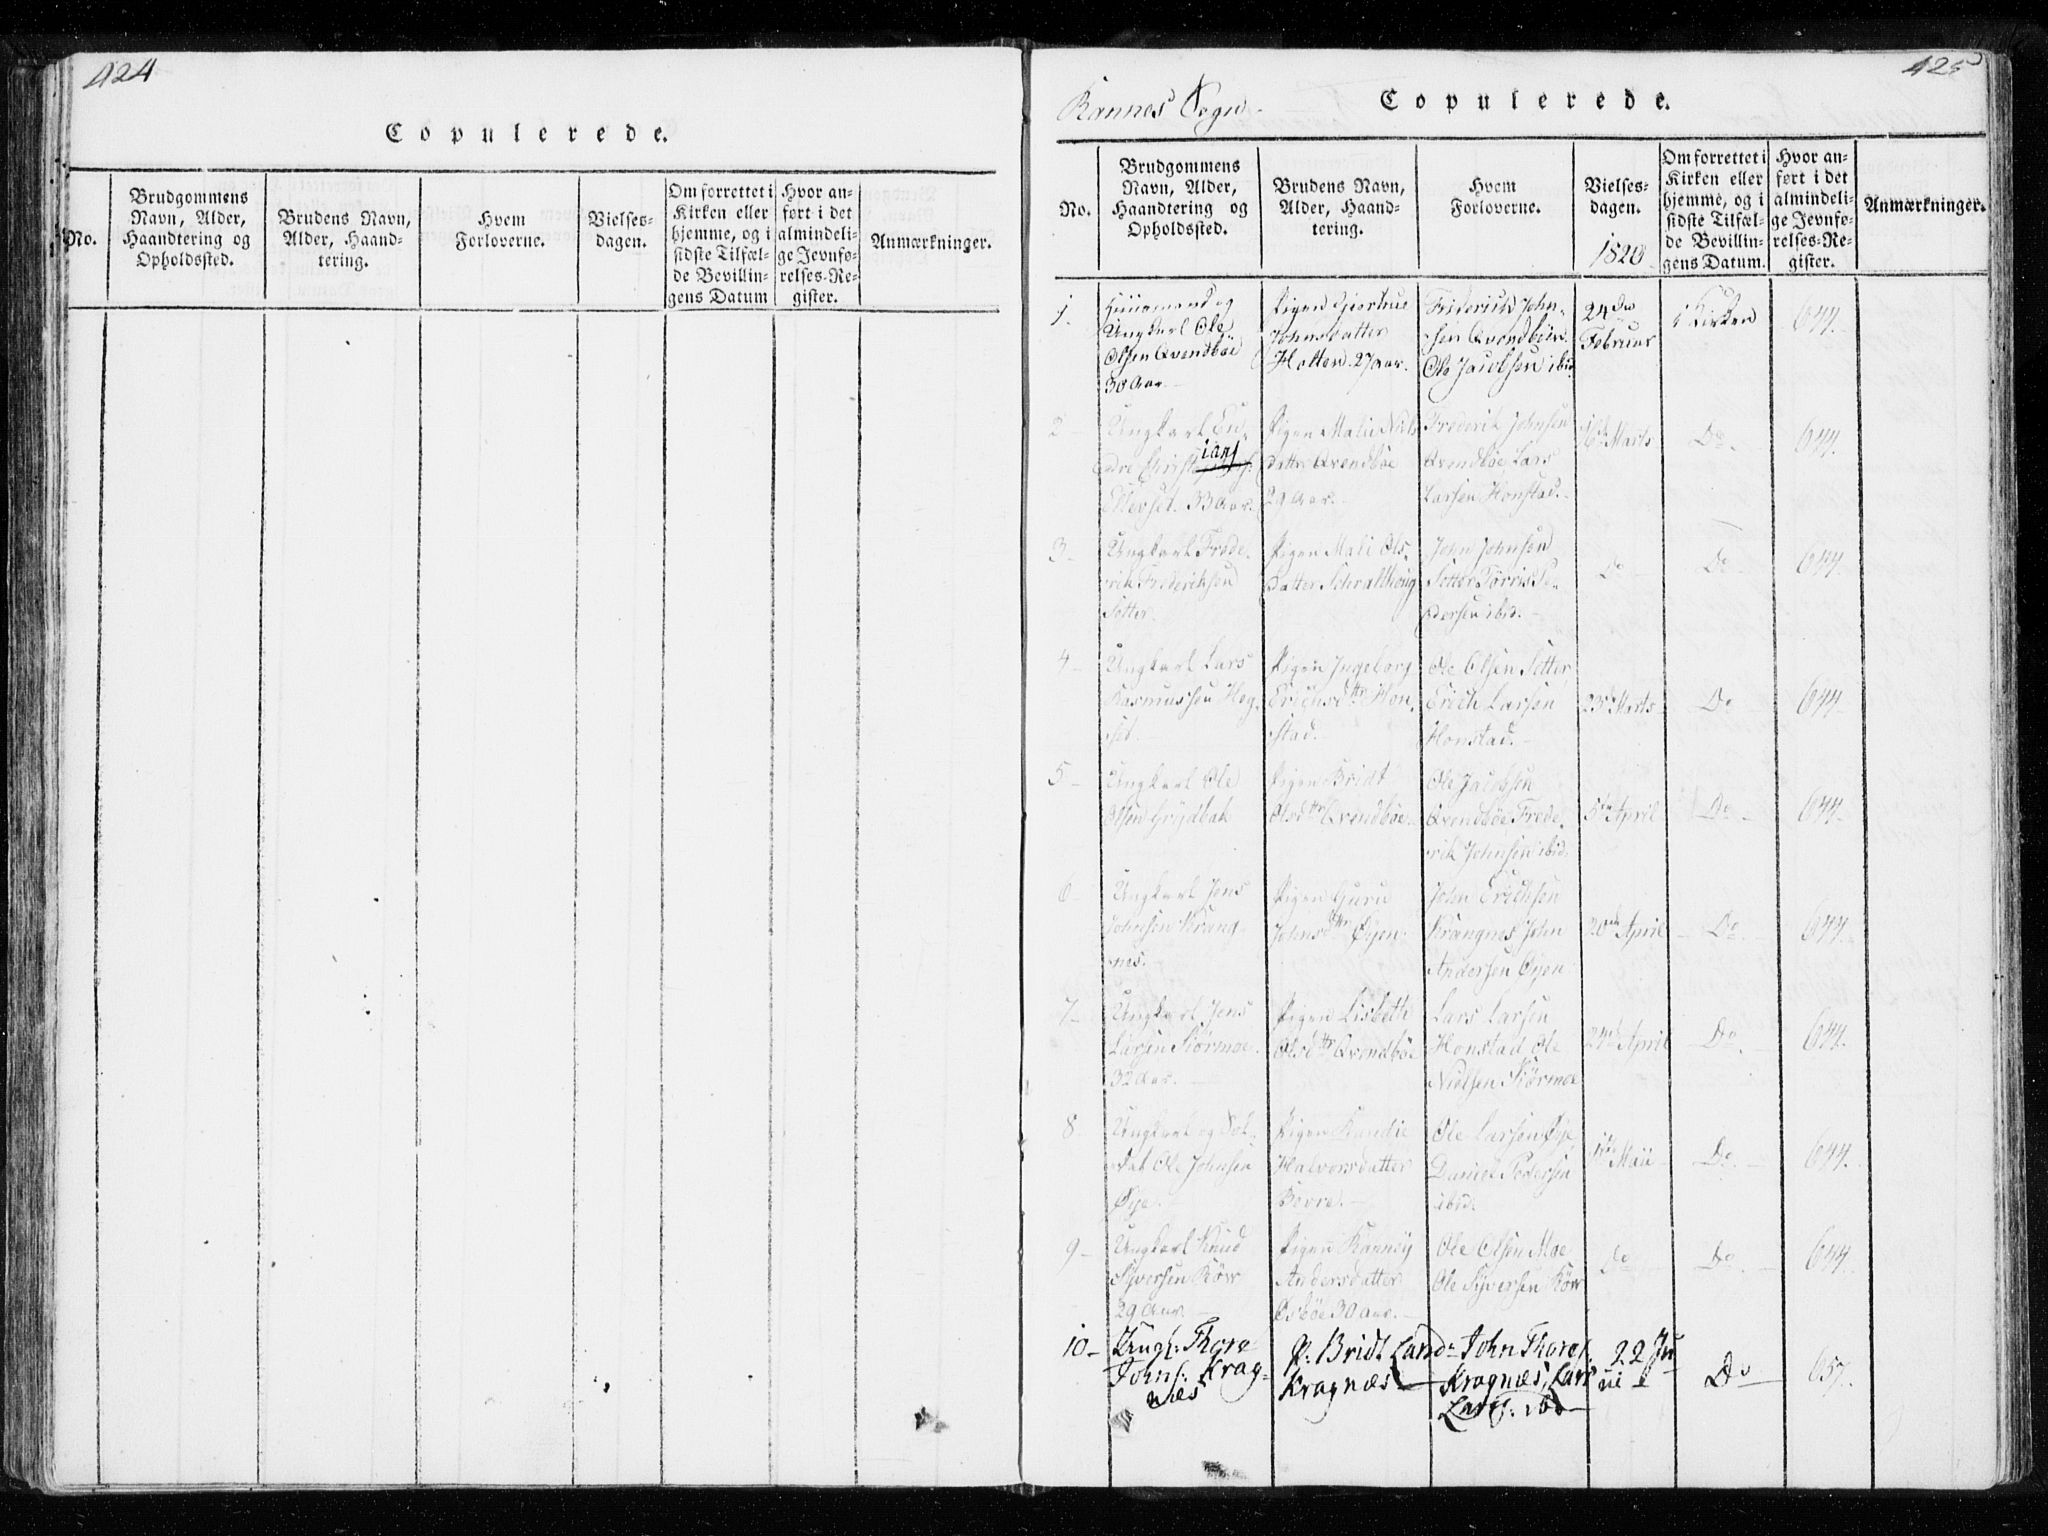 424
Copulerede.
No.
Brudgommens
Navn, Alder,
Haandtering og
Opholdssted.
Brudens Navn,
Alder, Haand-
tering.
Hvem
Forloverne.
Vielses-
dagen.
Om forrettet i
Kirken eller
hjemme, og i
sidste Tilfæl-
de Bevillin-
gens Datum
Hvor an-
ført i det
almindeli-
ge Jevnfø-
relses-Re-
gister.
Anmærkninger.
425
Rannes Sogn.
Copulerede.
No.
Brudgommens
Navn, Alder,
Haandtering og
Opholdssted.
Brudens Navn,
Alder, Haand-
tering.
Hvem
Forloverne.
Vielses-
dagen.
1820
Om forrettet i
Kirken eller
hjemme, og i
sidste Tilfæl-
de Bevillin-
gens Datum.
Hvor an-
ført i det
almindeli-
ge Jevnfø-
relses-Re-
gister.
Anmærkninger.
1.
og
Ungkarl Ole
Olsen Qvendböe
30 Aar
Pigen Giertrue
Johnsdatter
Holten. 27 aar.
Friderich John-
sen Qvendböe.
Ole Jacobsen ibid.
24de
Februar
i Kirken
644.
2
Ungkarl En-
dre Christ ians
33 Aar.
Pigen Malii Niels
datter Qvendböe
29 Aar.
Frederik Johnsen
Qvendböe, Lars
Larsen Honstad.
16de Marts
Do
644.
3
Ungkarl Frede-
rik Frederiksen
Sætter.
Pigen Mali Ols-
datter
John Johnsen
Sætter Törris Pe-
dersen ibid.
Do
Do
644.
4
Ungkarl Lars
Rasmussen Heg-
set.
Pigen Ingeborg
Erichsdtr Hon-
stad.
Ole Olsen Sætter
Erich Larsen
Honstad.
23de Marts
Do
644
5
Ungkarl Ole
Olsen Grydbak
Pigen Bridt
Olsdtr Qvendböe
Ole Jacobsen
Qvendböe, Frede-
rik Johnsen ibid.
5te April
Do
644
6
Ungkarl Jens
Johnsen Krang-
nes.
Pigen Guru
Johnsdtr Öyen.
John Erichsen
Krangnes, John
Andersen Öyen
20de April
Do
644.
7
Ungkarl Jens
Larsen Störmoe.
32 Aar.
Pigen Lisbeth
Olsdtr Qvendböe
Lars Larsen
Honstad Ole
Nielsen Störmoe
24de April
Do
644.
8
Ungkarl og Sol-
dat Ole Johnsen
Öye.
Pigen Randie
Halvorsdatter
Bovre.
Ole Larsen Öye
Daniel Pedersen
ibid.
Maii
Do
644.
9
Ungkarl Knud
Syversen Röv
29 Aar.
Pigen Rannöy
Andersdatter
30 aar.
Ole Olsen Moe
Ole Syversen Röv
Do
Do
644.
10
Ungk: Thore
Johns: Krag-
næs
P: Bridt Larsdr
Kragnæs
John Thores.
Kragnæs, Lars
Lars: ibd
22 Ju
ni
Do
657.